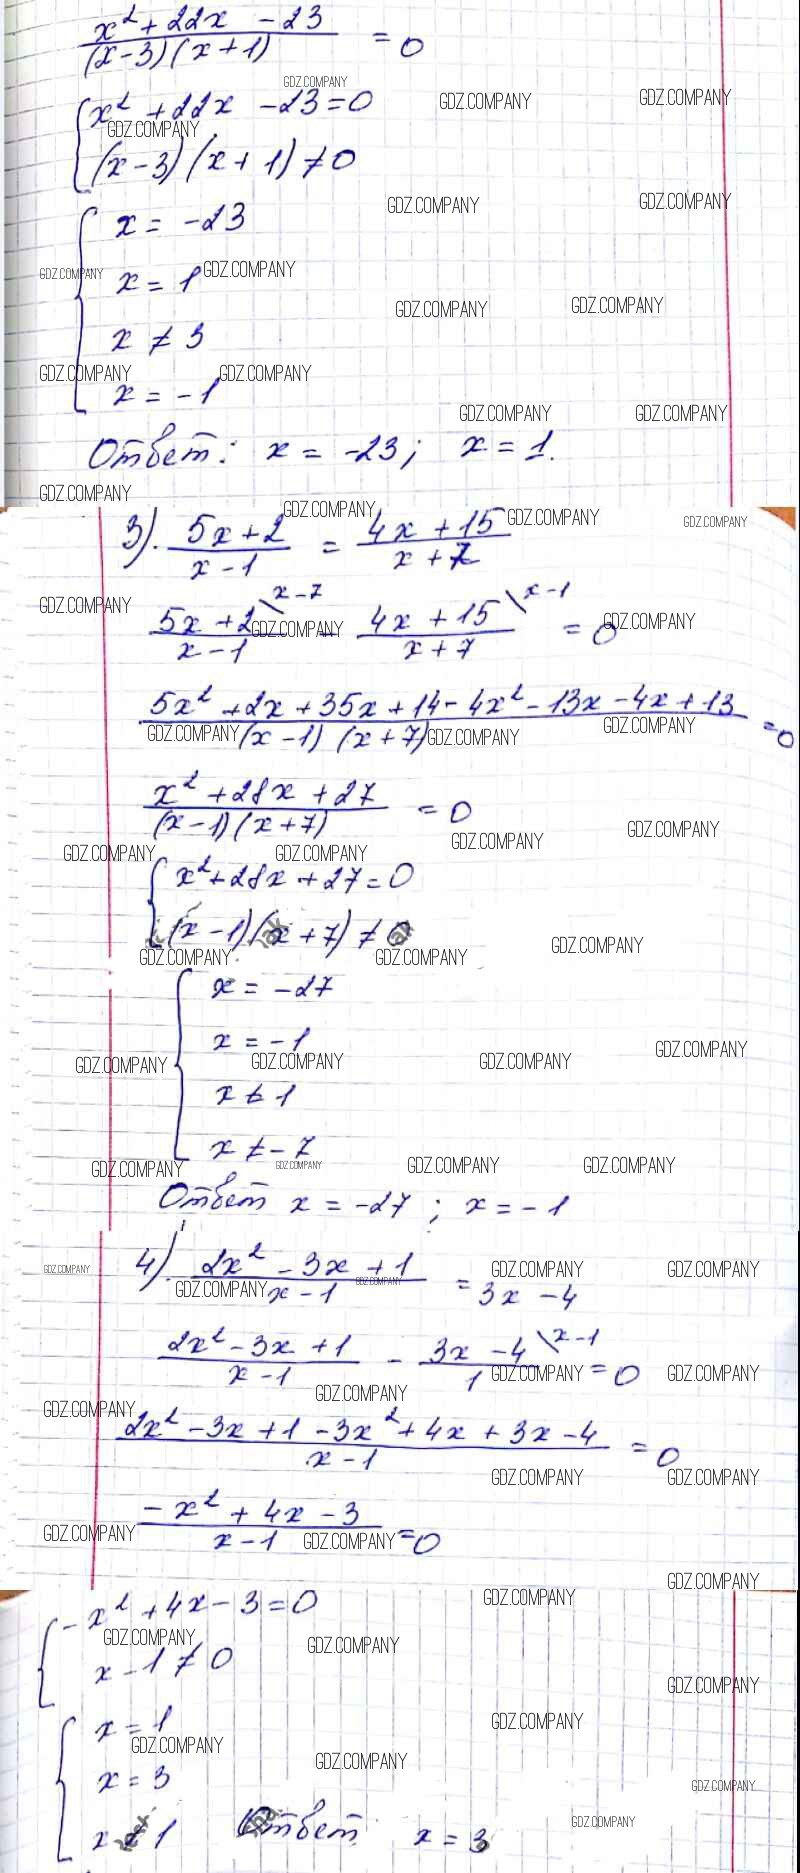 x² + 22x - 23 / (x-3)(x+1) = 0
GDZ.COMPANY
{ x² + 22x - 23 = 0
GDZ.COMPANY GDZ.COMPANY
GDZ.COMPANY
(x-3)(x+1) ≠ 0
GDZ.COMPANY GDZ.COMPANY
{ x = -23
GDZ.COMPANY GDZ.COMPANY
x = 1
GDZ.COMPANY GDZ.COMPANY
x ≠ 3
GDZ.COMPANY GDZ.COMPANY
x = -1
GDZ.COMPANY GDZ.COMPANY
Ответ: x = -23; x = 1.
GDZ.COMPANY
GDZ.COMPANY GDZ.COMPANY GDZ.COMPANY
3). 5x+2 / x-1 = 4x+15 / x+7
GDZ.COMPANY
5x+2 \x-7 / x-1 - 4x+15 \x-1 / x+7 = 0
GDZ.COMPANY GDZ.COMPANY
5x² + 2x + 35x + 14 - 4x² - 13x - 4x + 13 / (x-1)(x+7) = 0
GDZ.COMPANY GDZ.COMPANY GDZ.COMPANY
x² + 28x + 27 / (x-1)(x+7) = 0
GDZ.COMPANY GDZ.COMPANY
GDZ.COMPANY GDZ.COMPANY
{ x² + 28x + 27 = 0
(x-1)(x+7) ≠ 0
GDZ.COMPANY GDZ.COMPANY GDZ.COMPANY
{ x = -27
x = -1
GDZ.COMPANY GDZ.COMPANY GDZ.COMPANY GDZ.COMPANY
x ≠ 1
x ≠ -7
GDZ.COMPANY GDZ.COMPANY GDZ.COMPANY GDZ.COMPANY
Ответ x = -27; x = -1
4) 2x² - 3x + 1 / x-1 = 3x - 4
GDZ.COMPANY GDZ.COMPANY GDZ.COMPANY GDZ.COMPANY GDZ.COMPANY
2x² - 3x + 1 / x-1 - 3x-4 \x-1 / 1 = 0
GDZ.COMPANY GDZ.COMPANY GDZ.COMPANY
GDZ.COMPANY
2x² - 3x + 1 - 3x² + 4x + 3x - 4 / x-1 = 0
GDZ.COMPANY GDZ.COMPANY
-x² + 4x - 3 / x-1 = 0
GDZ.COMPANY GDZ.COMPANY
GDZ.COMPANY
{ -x² + 4x - 3 = 0
GDZ.COMPANY
GDZ.COMPANY GDZ.COMPANY
x - 1 ≠ 0
GDZ.COMPANY
{ x = 1
GDZ.COMPANY
GDZ.COMPANY GDZ.COMPANY
x = 3
GDZ.COMPANY
GDZ.COMPANY
x ≠ 1 Ответ x = 3